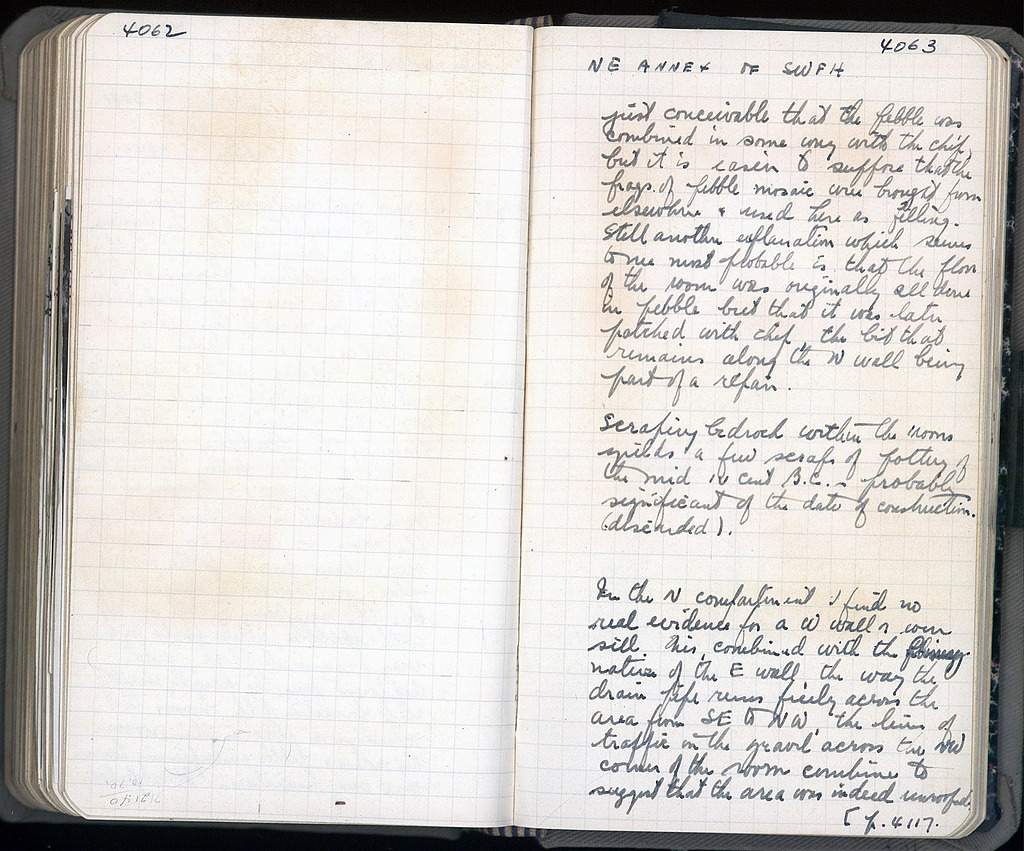 4062
4063
NE ANNEX OF SWFH
just conceivable that the pebble was
combined in some way with the chip,
but it is easier to suppose that the
frags. of pebble mosaic were brought from
elsewhere & used here as filling.
Still another explanation which seems
to me most probable is that the floor
of the room was originally all done
in pebble but that it was later
patched with chip, the bit that
remains along the N wall being
part of a repair.
Scraping bedrock within the rooms
yields a few scraps of pottery of
the mid IV cent B.C. - probably
significant of the date of construction.
(discarded).
In the N compartment I find no
real evidence for a W wall or even
sill. This, combined with the flimsy
nature of the E wall, the way the
drain pipe runs freely across the
area from SE to NW, the lines of
traffic in the gravel across the NW
corner of the room combine to
suggest that the area was indeed unroofed.
[ p. 4117.